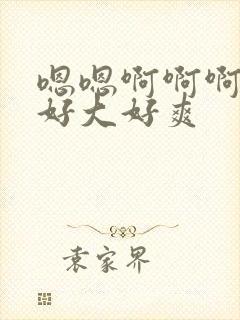 嗯嗯啊啊啊
好大好爽
袁家界